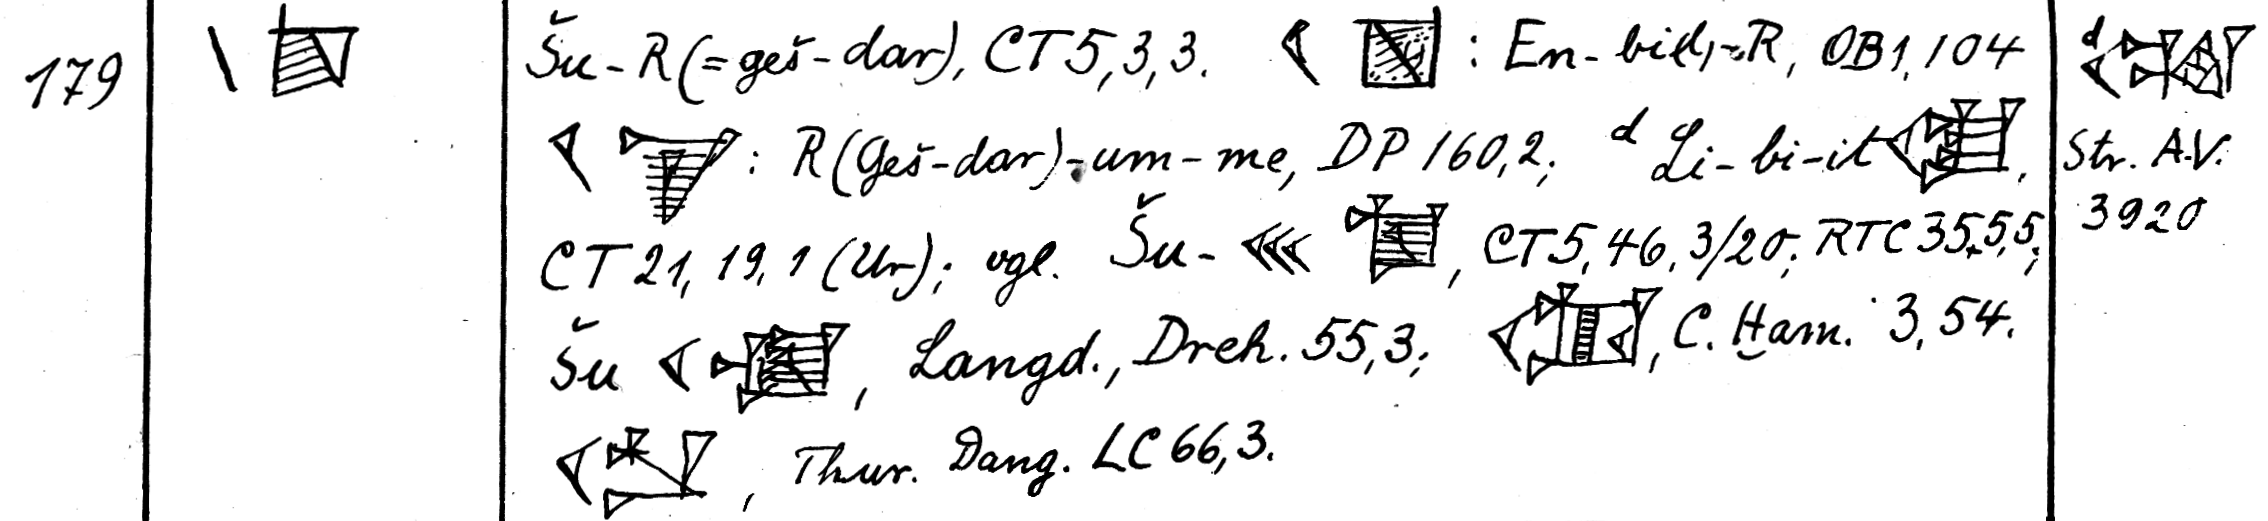 179
Šu-R(=geš-dar), CT 5,3,3. : En-bil-R, OB 1,104
: R(Geš-dar)-um-me, DP 160,2; d Li-bi-it ,
CT 21, 19, 1 (Ur); vgl. Šu- , CT 5, 46, 3/20; RTC 35,5,5;
Šu , Langd., Dreh. 55,3; , C. Ḫam. 3,54.
, Thur. Dang. LC 66,3.
d
Str. A.V.
3920